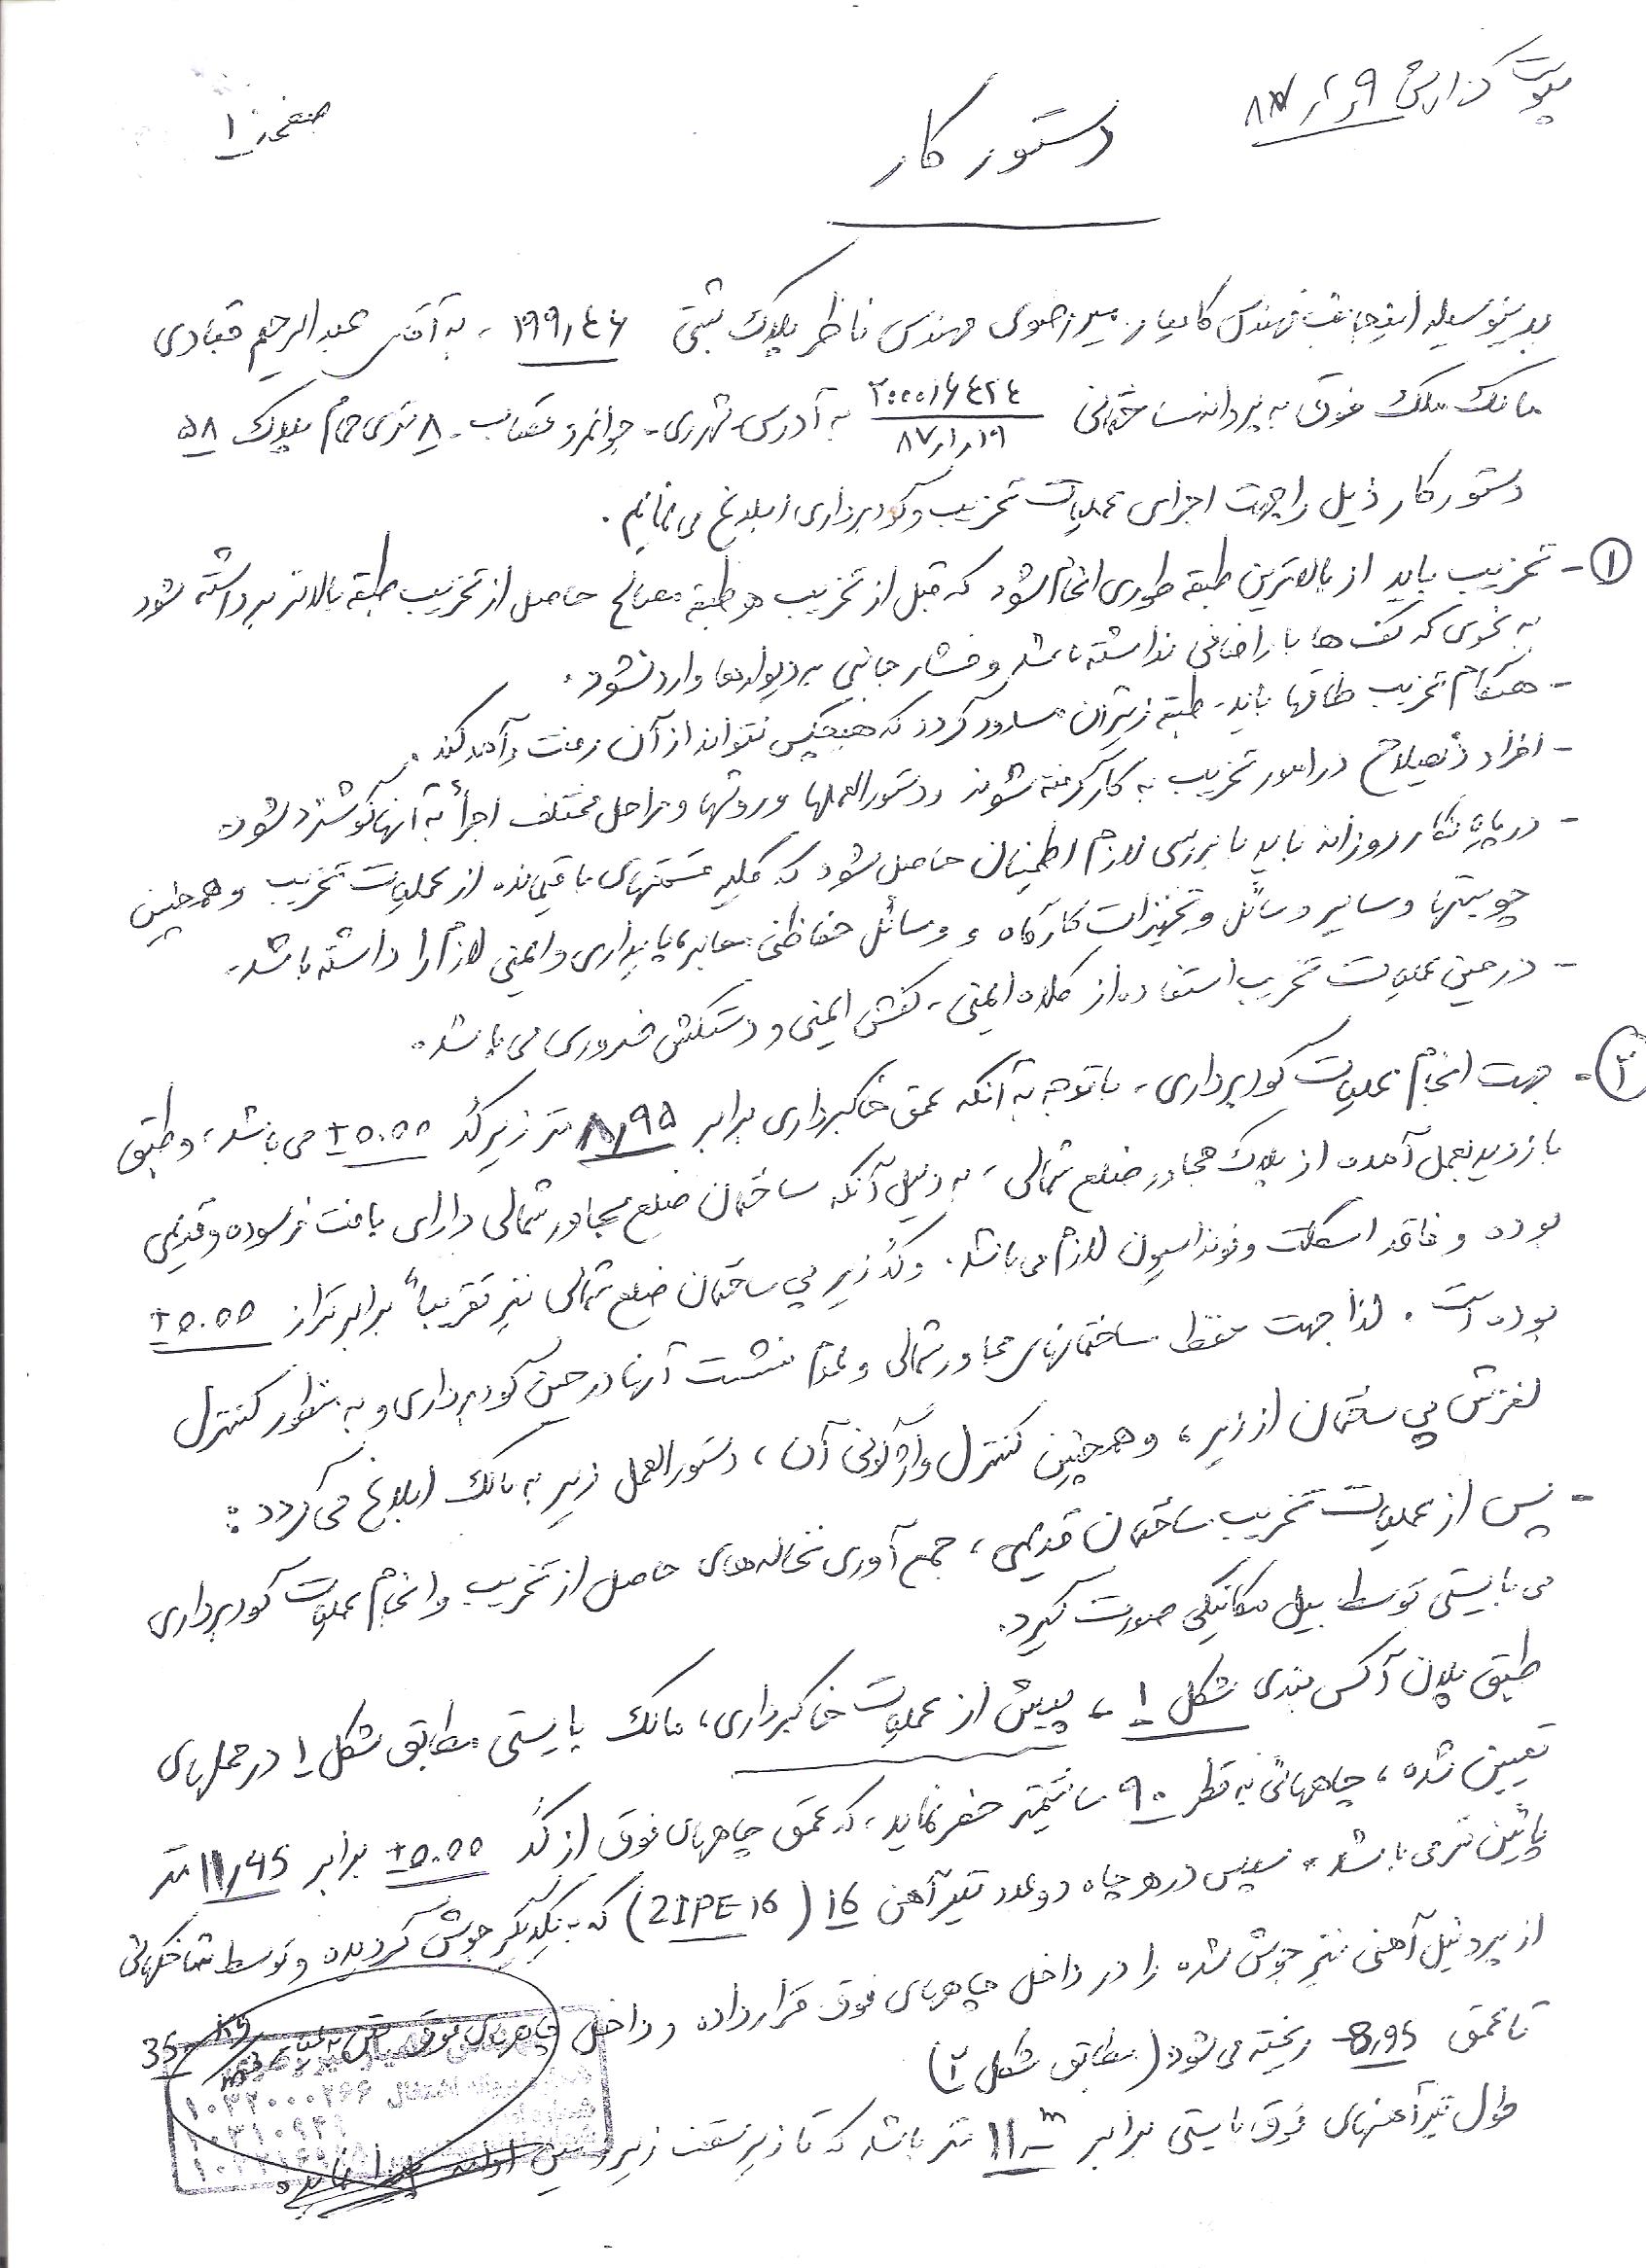 پیوست گزارش ۸۷/۲/۹
صفحه ۱
دستور کار
بدینوسیله اینجانب مهندس کامیار میررضوی مهندس ناظر پلاک ثبتی ۱۹۹/۴۶ - به آقای عبدالرحیم قبادی
مالک ملک فوق به پروانه ساختمانی ۲۰۰۰۱۶۴۲۴ / ۸۷/۱/۱۹ به آدرس شهرری - جوانمرد قصاب - ۸ متری پلاک ۵۸
دستور کار ذیل را جهت اجرای عملیات تخریب و گودبرداری ابلاغ می نمایم .
۱ - تخریب باید از بالاترین طبقه طوری انجام شود که قبل از تخریب هر طبقه مصالح حاصل از تخریب طبقه بالاتر برداشته شود
به نحوی که کف ها بار اضافی نداشته باشد و فشار جانبی بر دیوارها وارد نشود .
- هنگام تخریب طاقها باید - طبقه زیر آن مسدود گردد که هیچکس نتواند از آن رفت و آمد کند .
- افراد ذیصلاح در امور تخریب به کار گرفته شوند و دستورالعملها و روشها و مراحل مختلف اجرأ به آنها گوشزد شود
- در پایان کار روزانه باید با بررسی لازم اطمینان حاصل شود که کلیه قسمتهای باقیمانده از عملیات تخریب و همچنین
چوبستها و سایر وسائل و تجهیزات کارگاه و وسائل حفاظتی معابر، پایداری و ایمنی لازم را داشته باشد -
- در حین عملیات تخریب استفاده از کلاه ایمنی - کفش ایمنی و دستکش ضروری می باشد .
۲ - جهت انجام عملیات گودبرداری - با توجه به آنکه عمق خاکبرداری برابر ۸,۹۵ متر زیر کُد ±0.00 می باشد، و طبق
بازدید بعمل آمده از پلاک مجاور ضلع شمالی - به دلیل آنکه ساختمان ضلع مجاور شمالی دارای بافت فرسوده و قدیمی
بوده و فاقد اسکلت و فونداسیون لازم می باشد . و کُد زیر پی ساختمان ضلع شمالی نیز تقریباً برابر تراز ±0.00
بوده است . لذا جهت حفظ ساختمانهای مجاور شمالی و عدم نشست آنها در حین گودبرداری و به منظور کنترل
لغزش پی ساختمان از زیر ، و همچنین کنترل واژگونی آن ، دستورالعمل زیر به مالک ابلاغ می گردد :
- پس از عملیات تخریب ساختمان قدیمی ، جمع آوری نخاله های حاصل از تخریب و انجام عملیات گودبرداری
می بایستی توسط بیل مکانیکی صورت گیرد .
طبق پلان آکس بندی شکل ۱ ، پیش از عملیات خاکبرداری ، مالک بایستی مطابق شکل ۱ در محلهای
تعیین شده ، چاههائی به قطر ۹۰ سانتیمتر حفر نماید ، که عمق چاههای فوق از کُد ±0.00 برابر 11,95 متر
پائین تر می باشد . سپس در هر چاه دو عدد تیرآهن 16 (2IPE 16) که به یکدیگر جوش گردیده و توسط شاخکهائی
از پروفیل آهنی نیز جوش شده را در داخل چاههای فوق قرار داده و داخل چاههای فوق بتن 35
تا عمق 8,95- ریخته می شود (مطابق شکل ۲)
طول تیرآهنهای فوق بایستی برابر 11 m متر باشد که تا زیر سقف زیرزمین ادامه پیدا نماید .
شماره پروانه اشتغال ۱۰۳۲۰۰۰۲۶۶